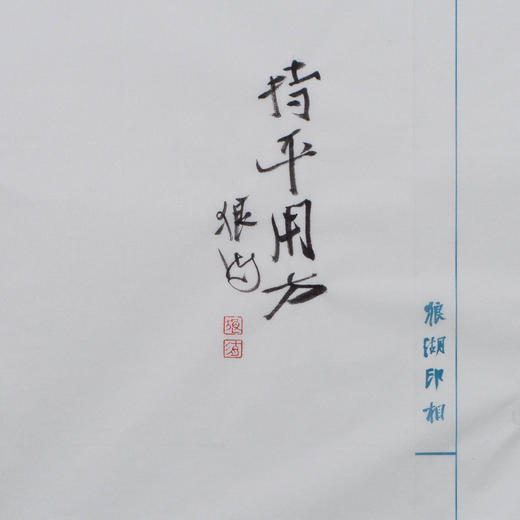 狼湖印相
持平用方
狼